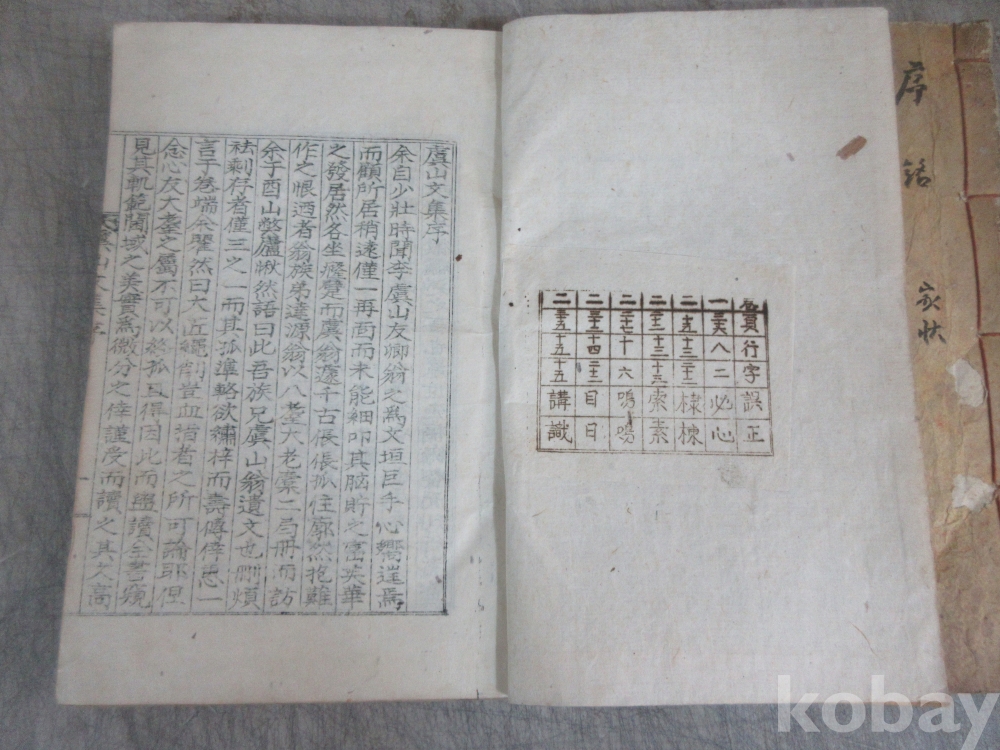 卷頁行字誤正
一 三六 八 二 必 心
二 十九 十三 二十二 棣 棟
二 二十二 十三 二十三 索 素
二 二十六 十 六 鳴 嗚
二 三十三 十四 二十二 目 日
二 三十五 十五 十五 講 識
虞山文集序
余自少壯時聞李虞山友卿翁之爲文垣巨手心嚮逞焉
而顧所居稍遠僅一再面而未能細叩其脳貯之富英華
之發居然各坐癃躄而虞翁遽千古倀倀孤住廓然抱難
作之恨迺者翁族弟達源翁以八耋大老橐二局冊而訪
余于酉山弊廬愀然語曰此吾族兄虞山翁遺文也刪煩
祛剩存者僅三之一而其孤準略欲繡梓而壽傳倖惠一
言于卷端余瞿然曰大匠繩削豈血指者之所可論耶但
念心友大耋之屬不可以終孤且倖因此而盡讀全書窺
見其軌範閫域之美實爲微分之倖謹受而讀之其文高
虞山文集序
kobay